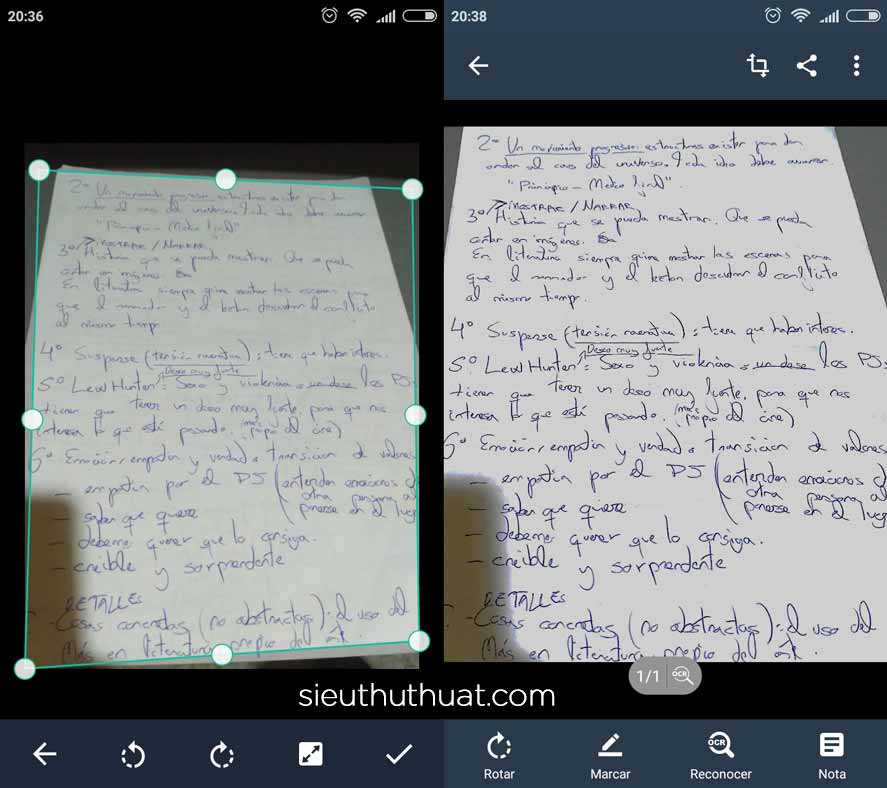 20:36
2º Un movimiento progresivo: estructuras existen para dar
orden al caos del universo. Toda idea debe
"Principio - Medio - Final"
3º MOSTRAR / NARRAR
Historia que se pueda mostrar. Que se pueda
contar en imágenes.
En literatura siempre quiero mostrar las escenas para
que el narrador y el lector descubran el conflicto
al mismo tiempo
4º Suspense (tensión narrativa): tiene que haber interes.
Deseo muy fuerte
5º Lew Hunter: Sexo y violencia los PJs
tienen que tener un deseo muy fuerte, para que nos
interesa lo que está pasando. (más propio del cine)
6º Emoción, empatía y verdad transición de valores
- empatía por el PJ (entender emociones
otra persona
ponerse en el lug
- saber que quiere
- debemos querer que lo consiga.
- creible y sorprendente
DETALLES
- Cosas concretas (no abstractas): el uso del
Más en literatura, propio del
20:38
2º Un movimiento progresivo: estructuras existen para dar
orden al caos del universo. Toda idea debe
"Principio - Medio - Final".
3º MOSTRAR / NARRAR
Historia que se pueda mostrar. Que se pueda
contar en imágenes.
En literatura siempre quiero mostrar las escenas para
que el narrador y el lector descubran el conflicto
al mismo tiempo.
4º Suspense (tensión narrativa): tiene que haber interes.
Deseo muy fuerte
5º Lew Hunter: Sexo y violencia los PJs
tienen que tener un deseo muy fuerte, para que nos
interesa lo que está pasando. (más propio del cine)
6º Emoción, empatía y verdad transición de valores
- empatía por el PJ (entender emociones
otra persona
ponerse en el lug
- saber que quiere
- debemos querer que lo consiga.
- creible y sorprendente
DETALLES
- Cosas concretas (no abstractas): el uso del
Más en literatura, propio del
1/1 OCR
sieuthuthuat.com
Rotar
Marcar
OCR
Reconocer
Nota